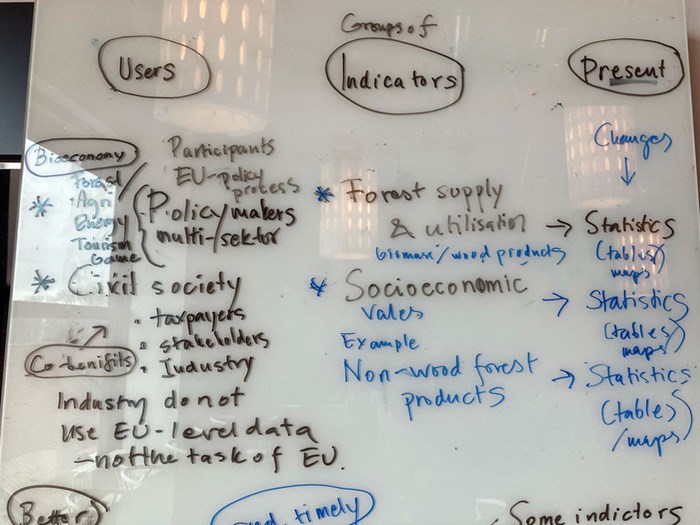 Users
Bioeconomy
Forest
* Agri
Energy
Tourism
Game
Participants
EU-policy
process
Policy makers
multi-sektor
* Civil society
• taxpayers
• stakeholders
• Industry
Co-benifits
Industry do not
use EU-level data
– not the task of EU.
Better
Groups of
Indicators
* Forest supply
& utilisation →
biomass/wood products
* Socioeconomic
vales →
Example
Non-wood forest →
products
timely
Present
Changes
↓
Statistics
(tables)
maps
Statistics
(tables)
maps
Statistics
(table)
/maps
Some indictors